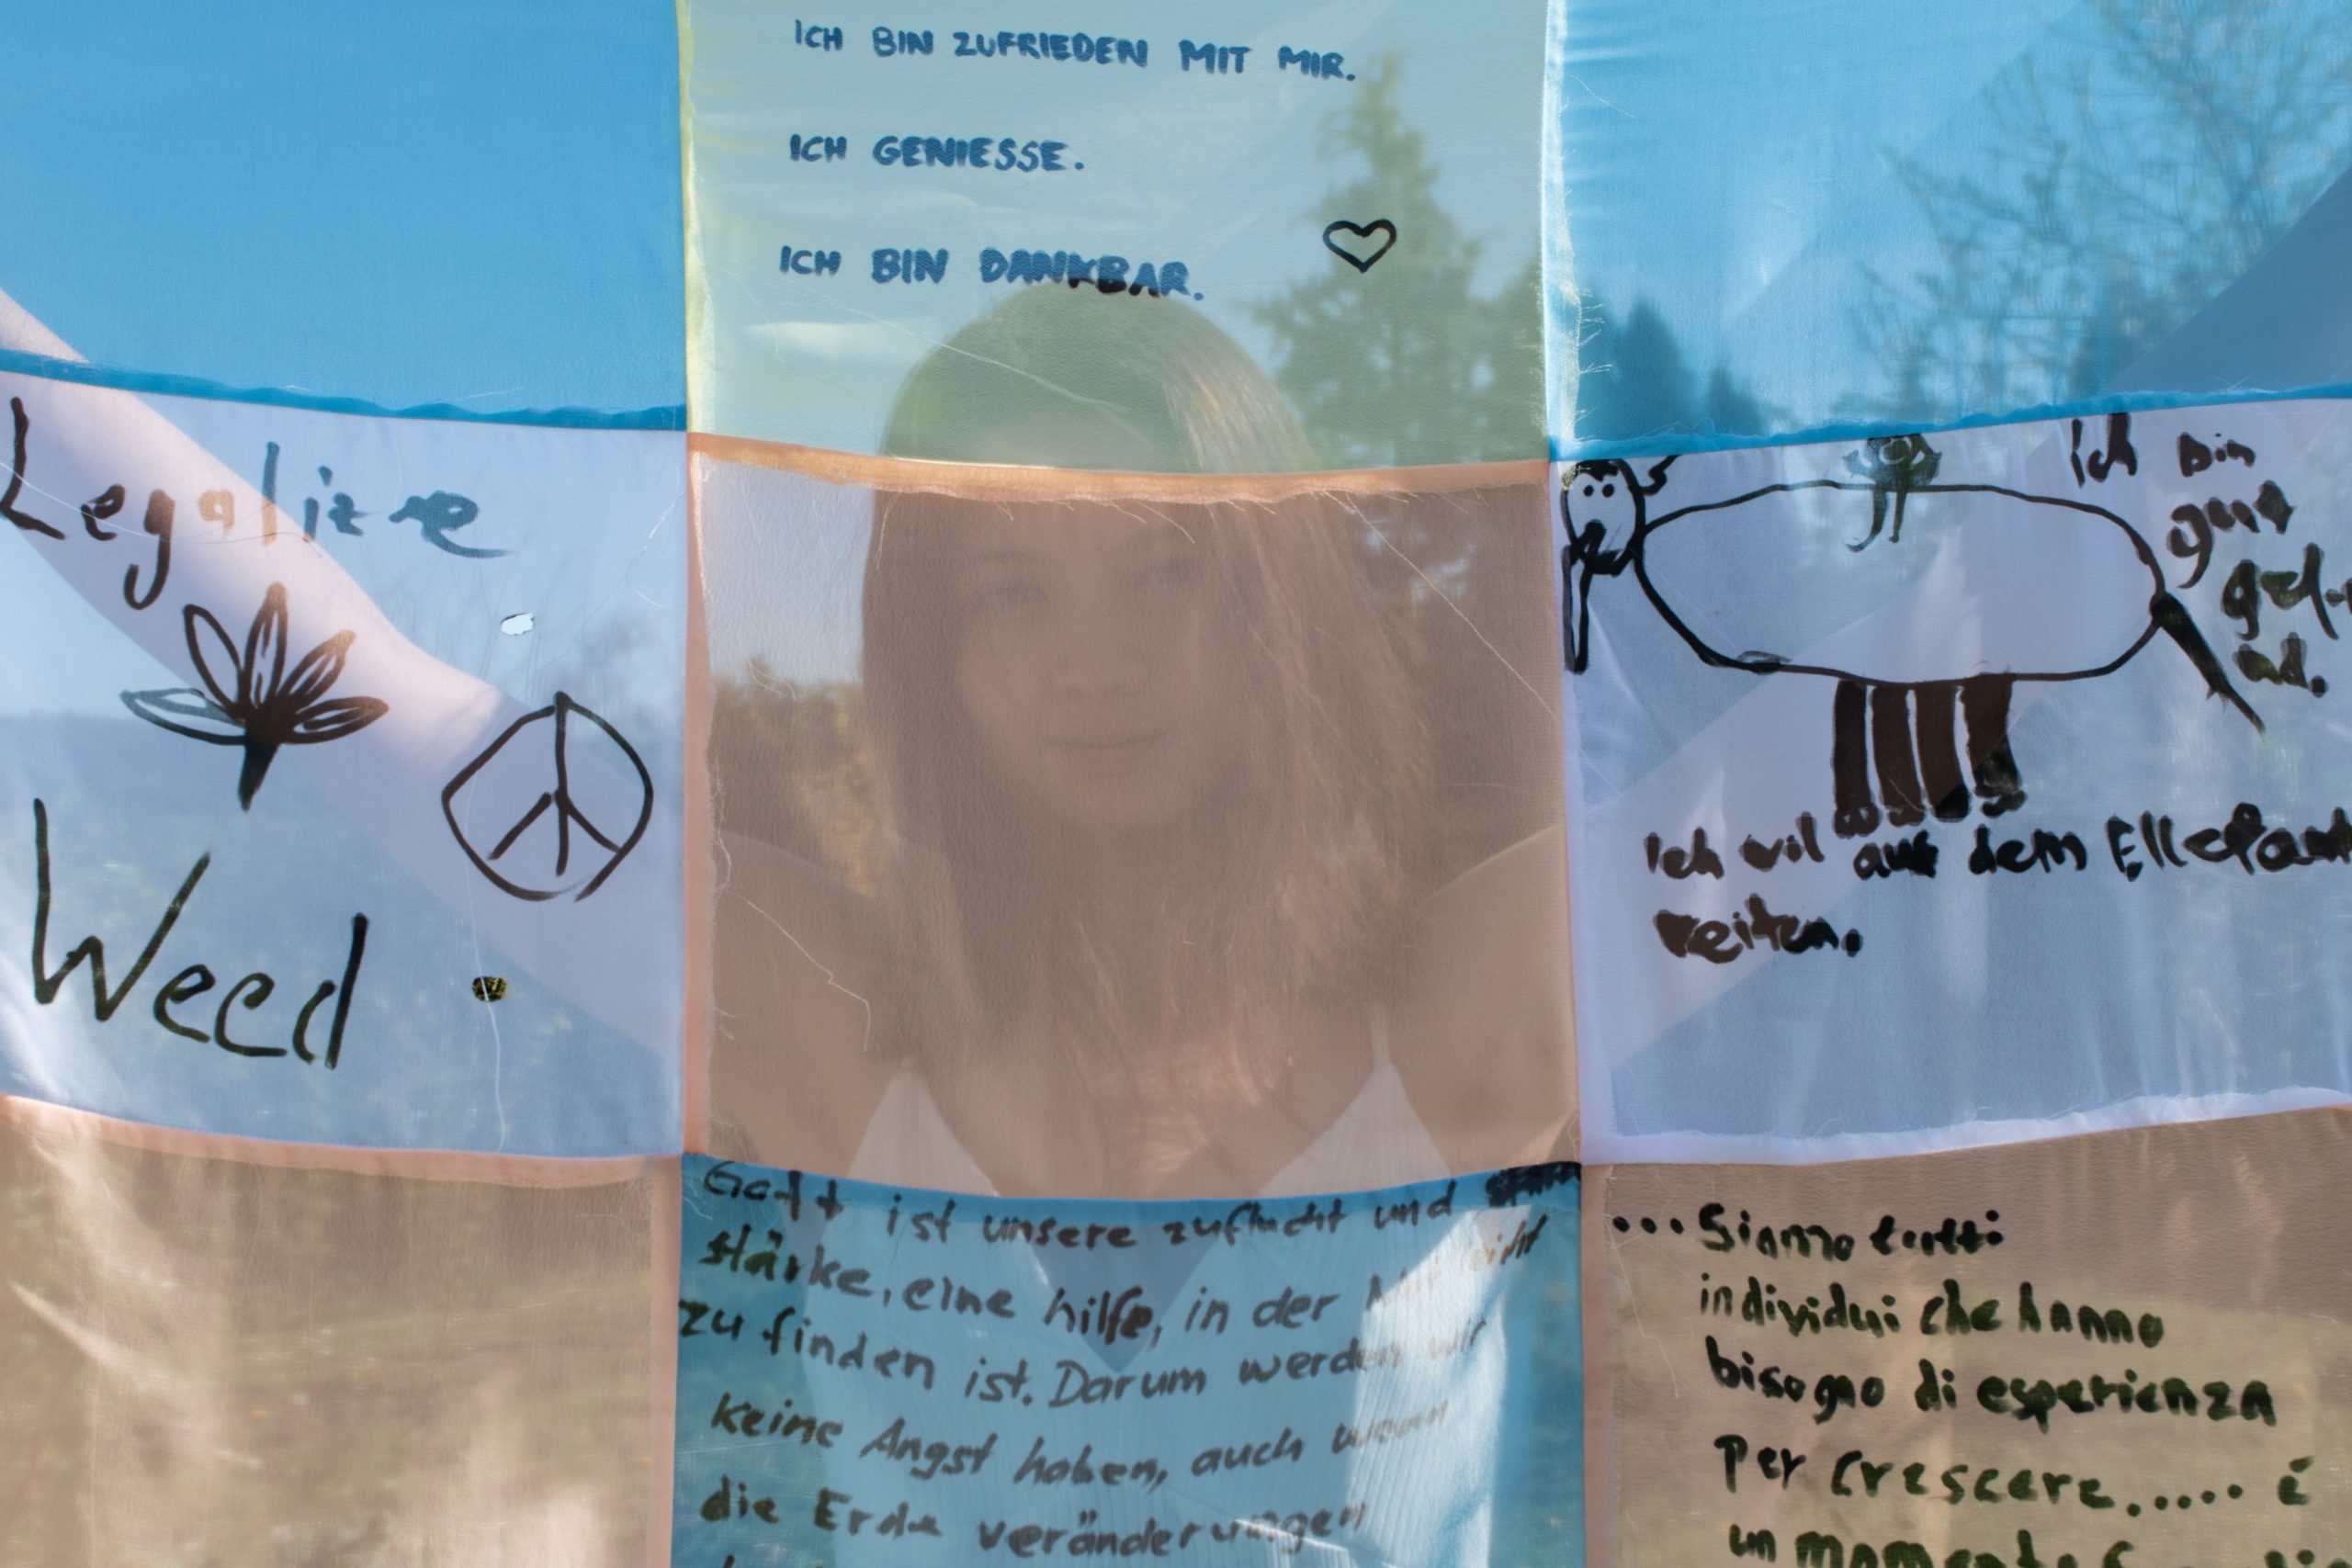 ICH BIN ZUFRIEDEN MIT MIR.
ICH GENIESSE.
ICH BIN DANKBAR.
Legalize
Weed
Ich bin
gut
gel-
nd.
Ich wil auf dem Ellefant
reiten.
Gott ist unsere zuflucht und
stärke, eine hilfe, in der Not leicht
zu finden ist. Darum werden wir
keine Angst haben, auch wenn
die Erde veränderungen
...Siamo tutti
individui che hanno
bisogno di esperienza
per crescere..... é
un momento